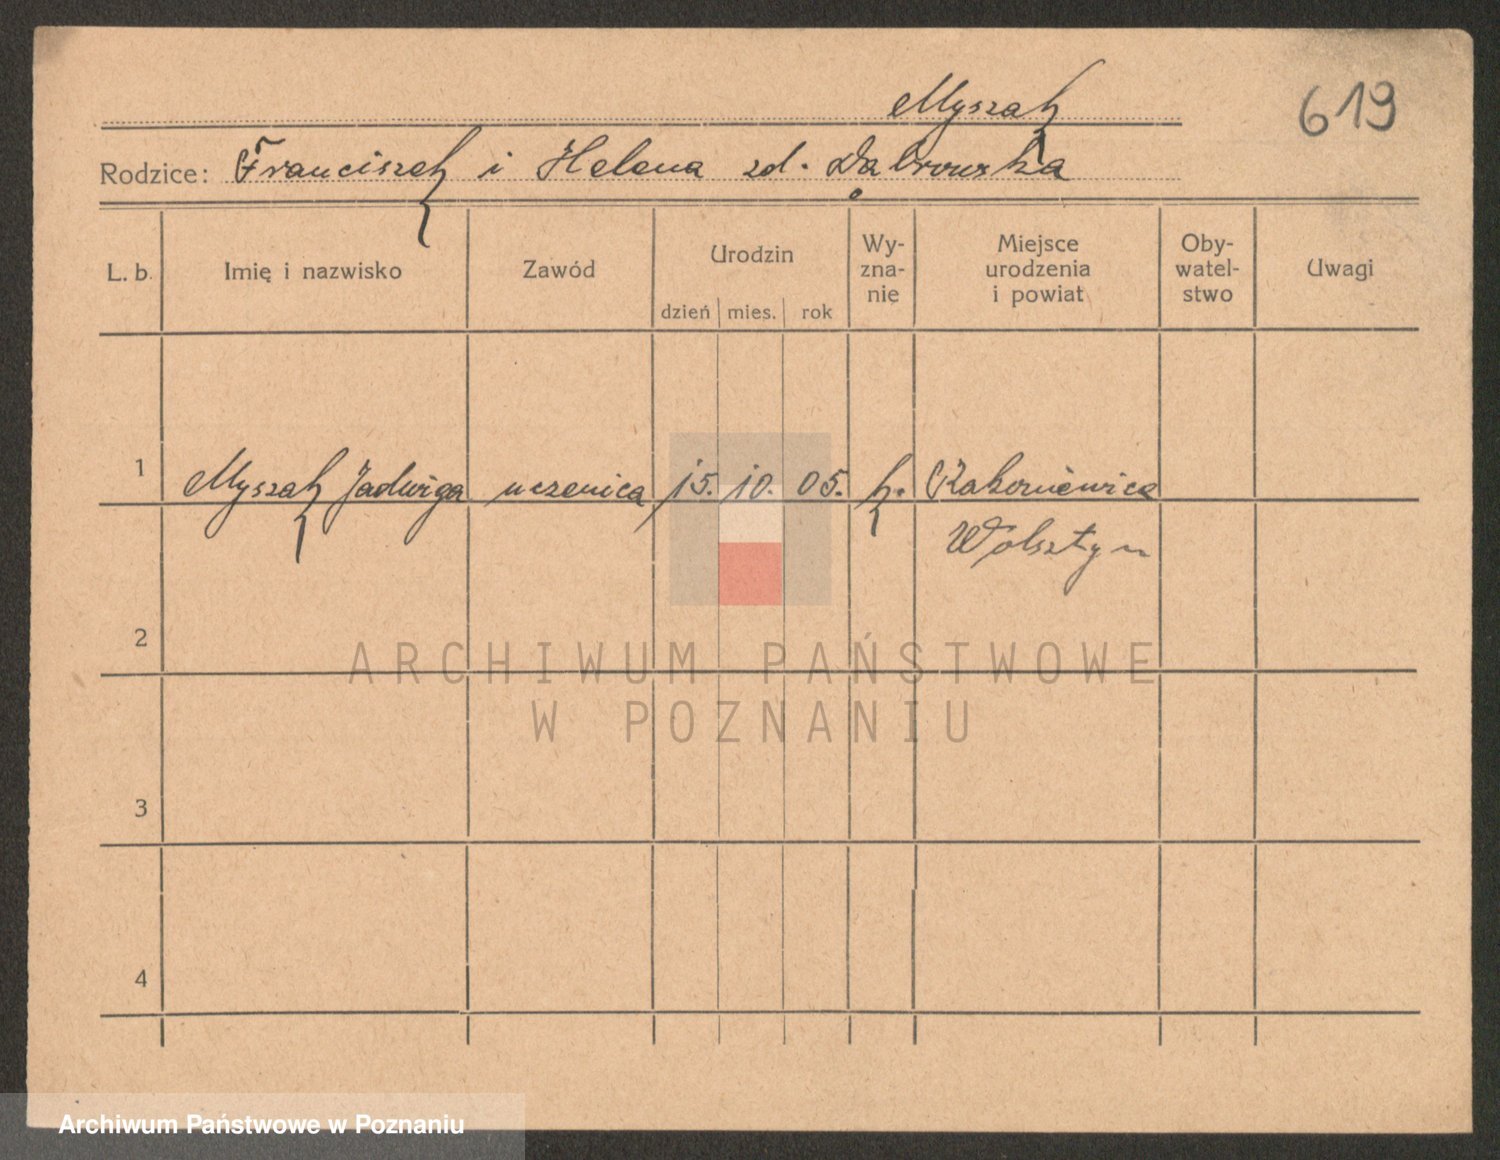 Myszak
619
Rodzice: Franciszek i Helena zd. Dąbrowska
L. b. Imię i nazwisko Zawód Urodzin dzień mies. rok Wy-zna-nie Miejsce urodzenia i powiat Oby-watel-stwo Uwagi
1 Myszak Jadwiga uczenica 15. 10. 05. k. Rakoniewice
Wolsztyn
2
ARCHIWUM PAŃSTWOWE
W POZNANIU
3
4
Archiwum Państwowe w Poznaniu